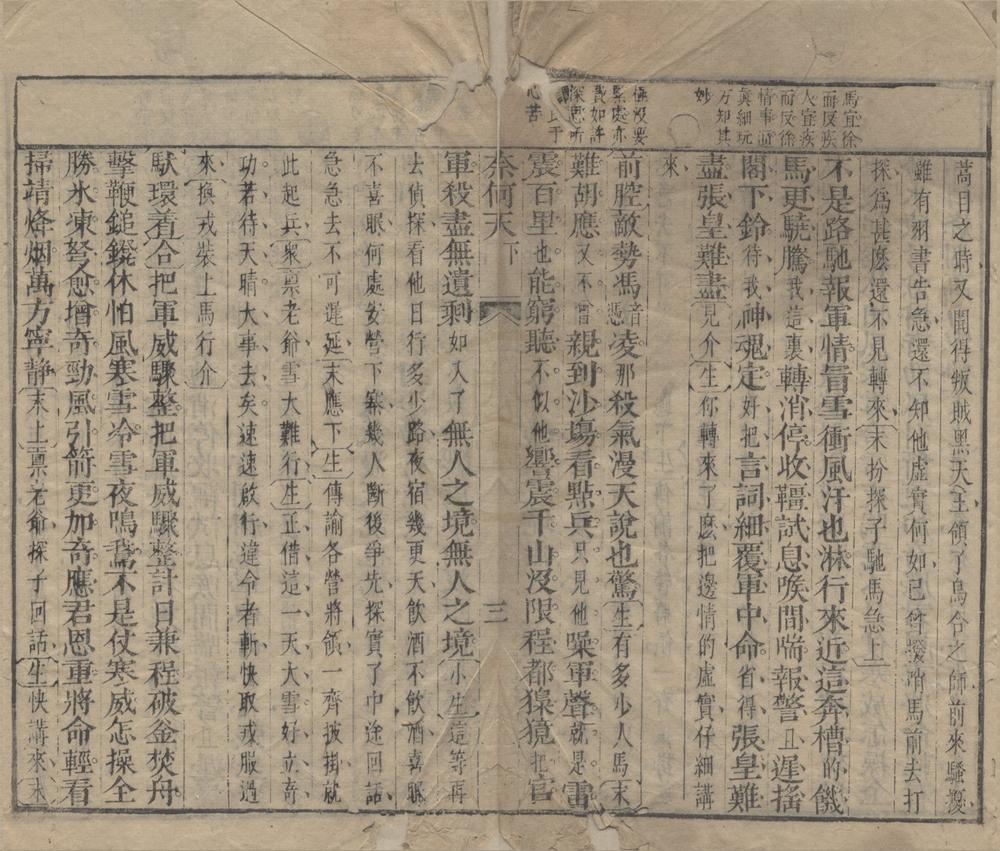 馬宜徐
而反疾
人宜疾
而反徐
情事逼
眞細玩
方知其
妙
極沒要
緊處亦
費如許
深思所
謂 于
心苦
蒿目之時又聞得叛賊黑天王領了烏合之師前來騷擾
雖有羽書告急還不知他虛實何如已曾撥 馬前去打
探爲甚麽還不見轉來末扮探子馳馬急上
不是路馳報軍情冒雪衝風汗也淋行來近這奔槽的饑
馬更驍騰我這裏轉消停收韁試息喉間喘報警且遲搖
閣下鈴待我神魂定好把言詞細覆軍中命省得張皇難
盡張皇難盡見介生你轉來了麽把邊情的虛實仔細講
來
前腔敵勢馮音憑凌那殺氣漫天說也驚生有多少人馬末
難胡應又不曾親到沙塲看點兵只見他噪軍聲就是雷
震百里也能窮聽不似他響震千山沒限程都猰獍把官
奈何天 下 三
軍殺盡無遺剩如入了無人之境無人之境小生這等再
去偵探看他日行多少路夜宿幾更天飲酒不飲酒喜眠
不喜眠何處安營下寨幾人斷後爭先探實了中途回話
急急去不可遲延末應下生傳諭各營將領一齊披掛就
此起兵衆禀老爺雪大難行生正借這一天大雪好立奇
功若待天晴大事去矣速速啟行違令者斬快取戎服過
來換戎裝上馬行介
馱環着合把軍威驟整把軍威驟整計日兼程破釜焚舟
擊鞭鎚鐙休怕風寒雪冷雪夜鳴鵞不是仗寒威怎操全
勝氷凍弩愈增奇勁風引箭更加奇應君恩重將命輕看
掃靖烽烟萬方寧静末上禀老爺探子回話生快講來末